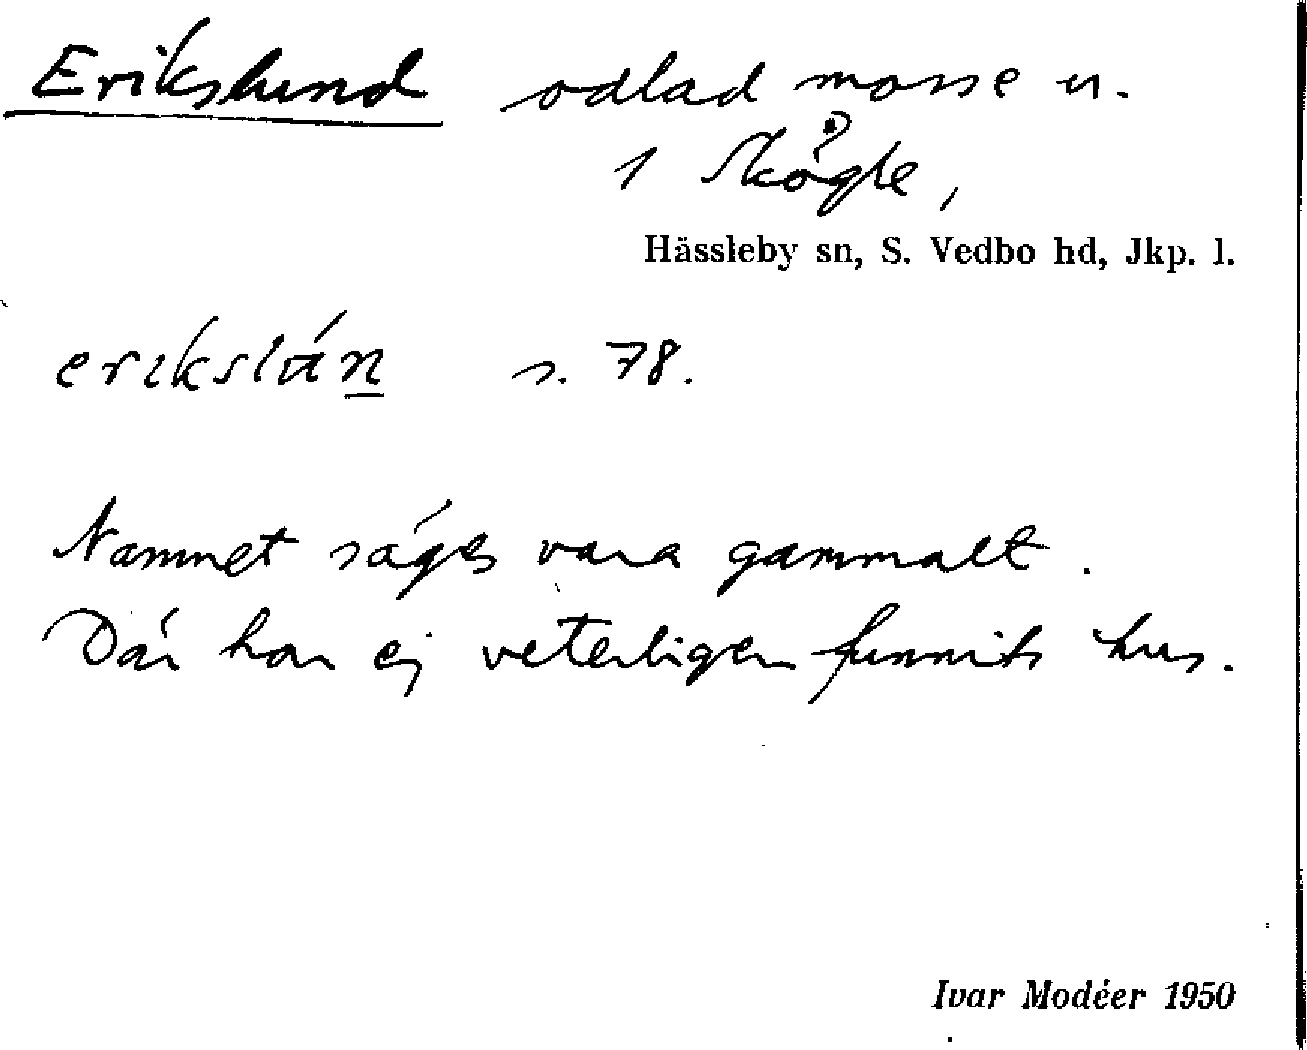 Erikslund odlad mosse u.
1 Skögle,
Hässleby sn, S. Vedbo hd, Jkp. l.
s. 78.
Namnet säges vara gammalt.
Där har ej veterligen funnits hus.
Ivar Modéer 1950